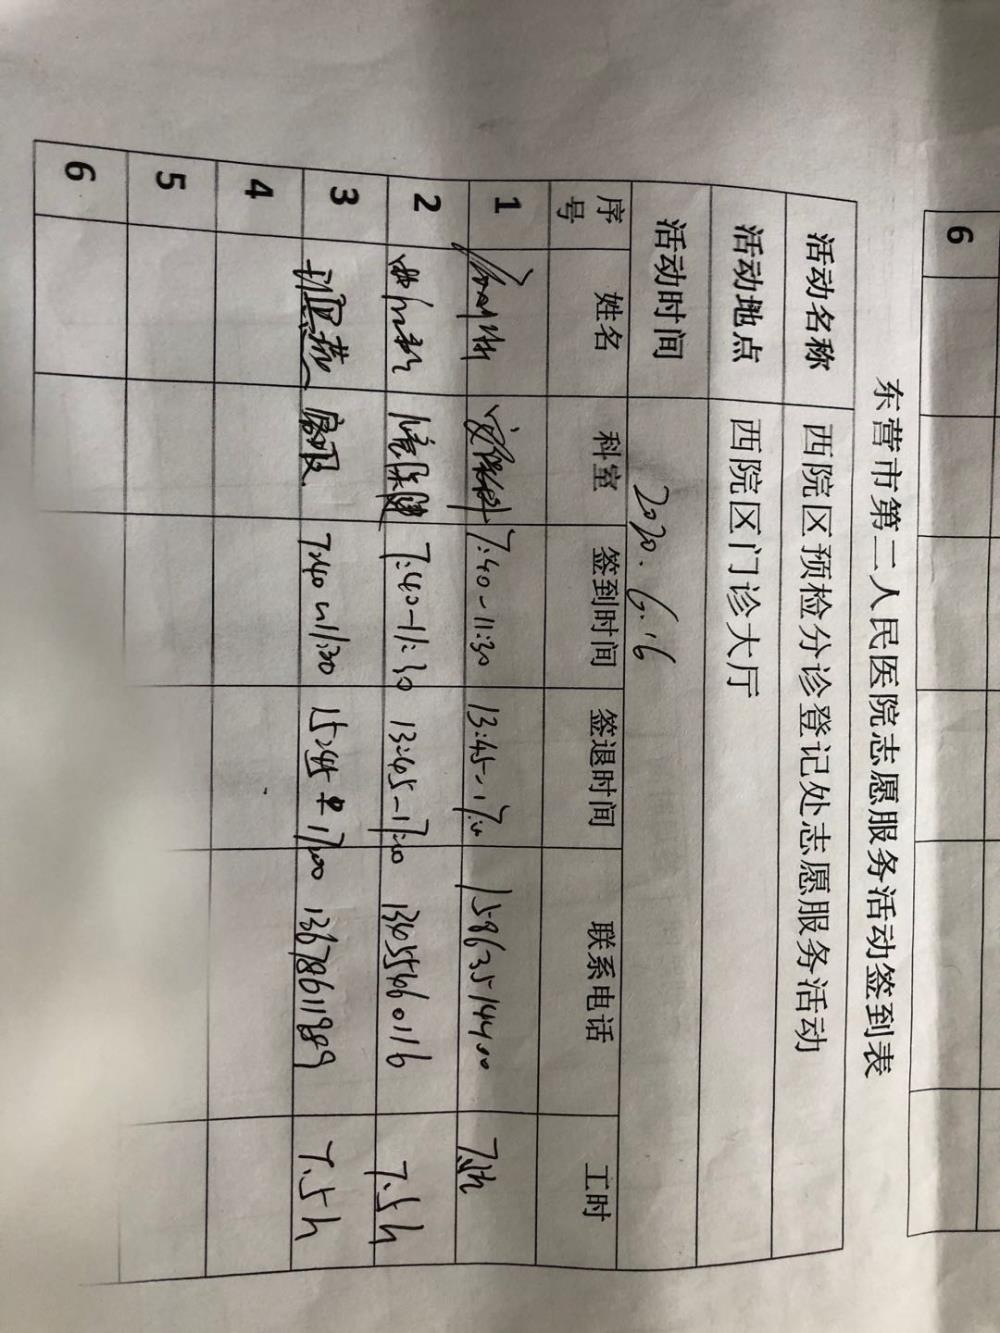 6
东营市第二人民医院志愿服务活动签到表
活动名称 西院区预检分诊登记处志愿服务活动
活动地点 西院区门诊大厅
活动时间 2020.6.16
序号 姓名 科室 签到时间 签退时间 联系电话 工时
1 7:40-11:30 13:45-17:00 15863514400 7.5h
2 7:40-11:30 13:45-17:00 13455660116 7.5h
3 7:40~11:30 17:00 13678611989 7.5h
4
5
6